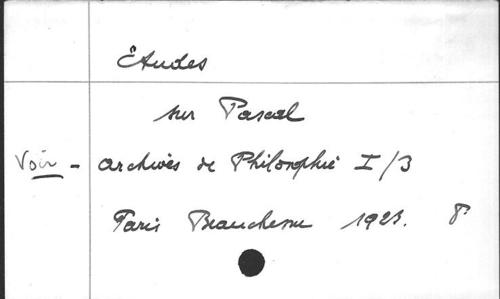 Etudes
sur Pascal
Voir - Archives de Philosophie I/3
Paris Beauchesne 1923. 8°